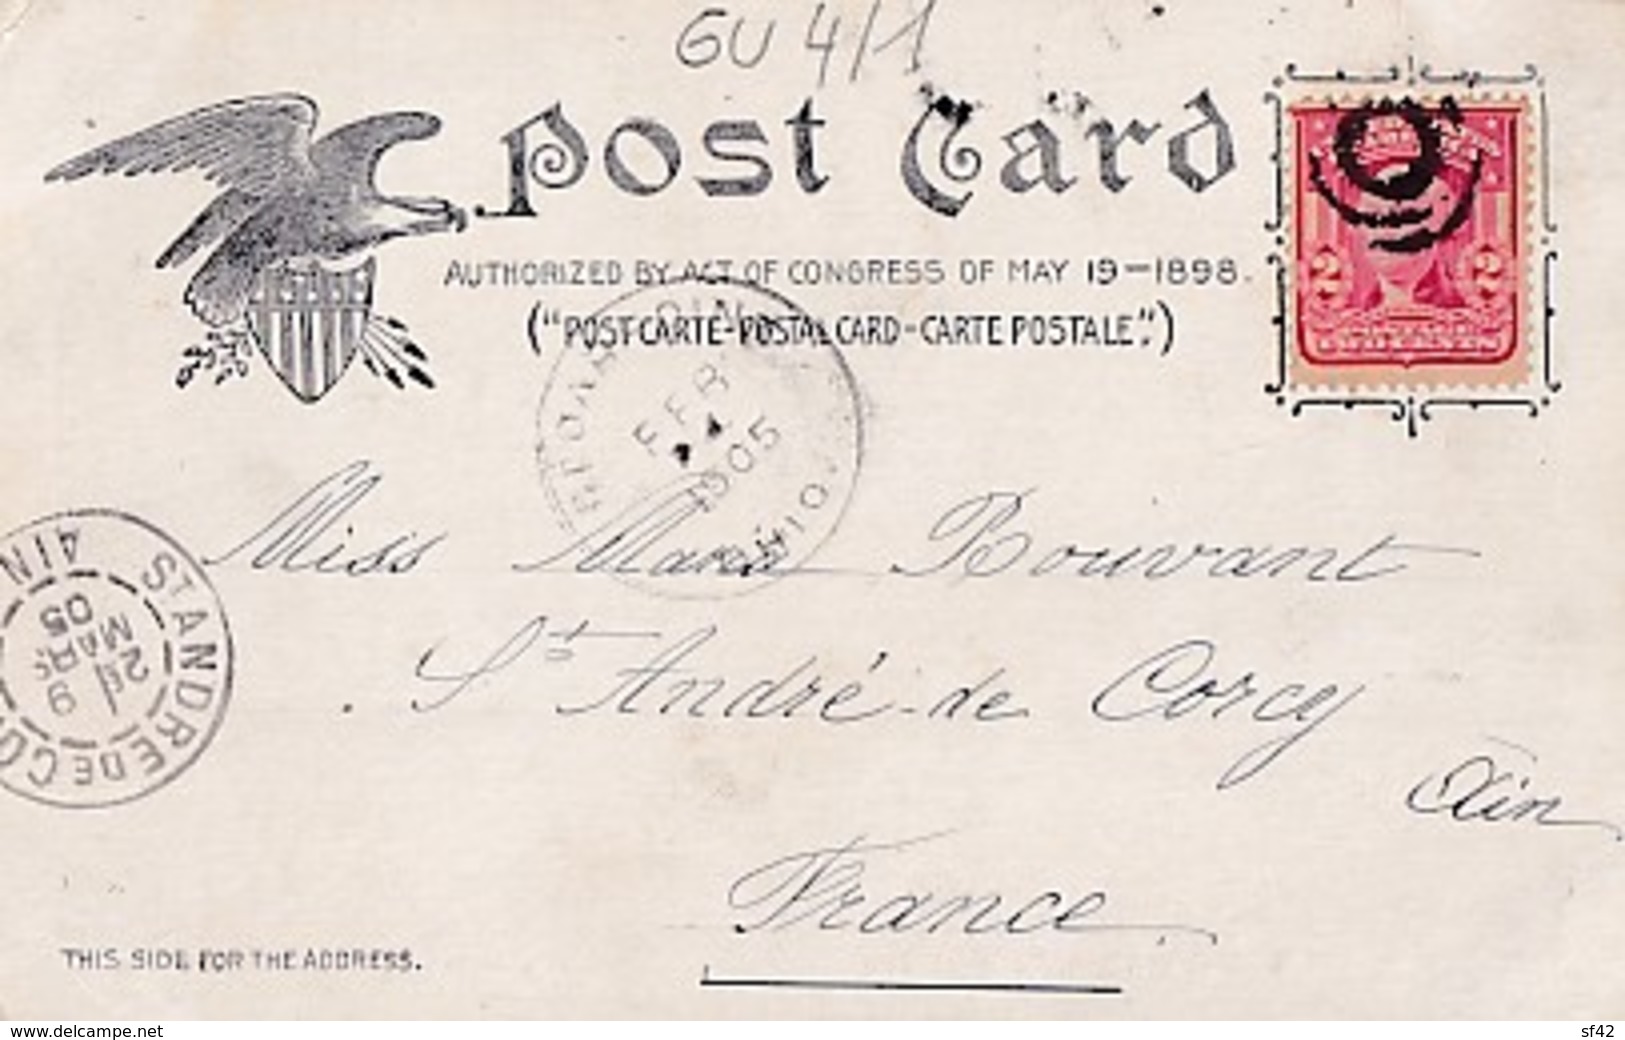 GU 4/1
Post Card
AUTHORIZED BY ACT OF CONGRESS OF MAY 19-1898.
("POST CARTE-POSTAL CARD-CARTE POSTALE".)
2 2
POSTAGE
TWO CENTS
FEB
1905
OHIO
Miss Maria Bouvant
St André-de Corcy
Ain
France
ST ANDRE DE CO
AIN
9
21
MARS
05
THIS SIDE FOR THE ADDRESS.
www.delcampe.net
sf42